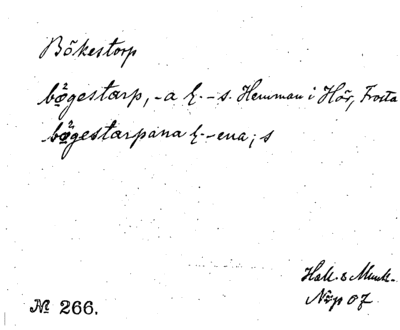 Bökestorp
bǿgestarp, -a l. -s. Hemman i Hör, Frosta
bǿgestarpana l. -ena; s
Hall. & Munk-
Nrp 07
№ 266.